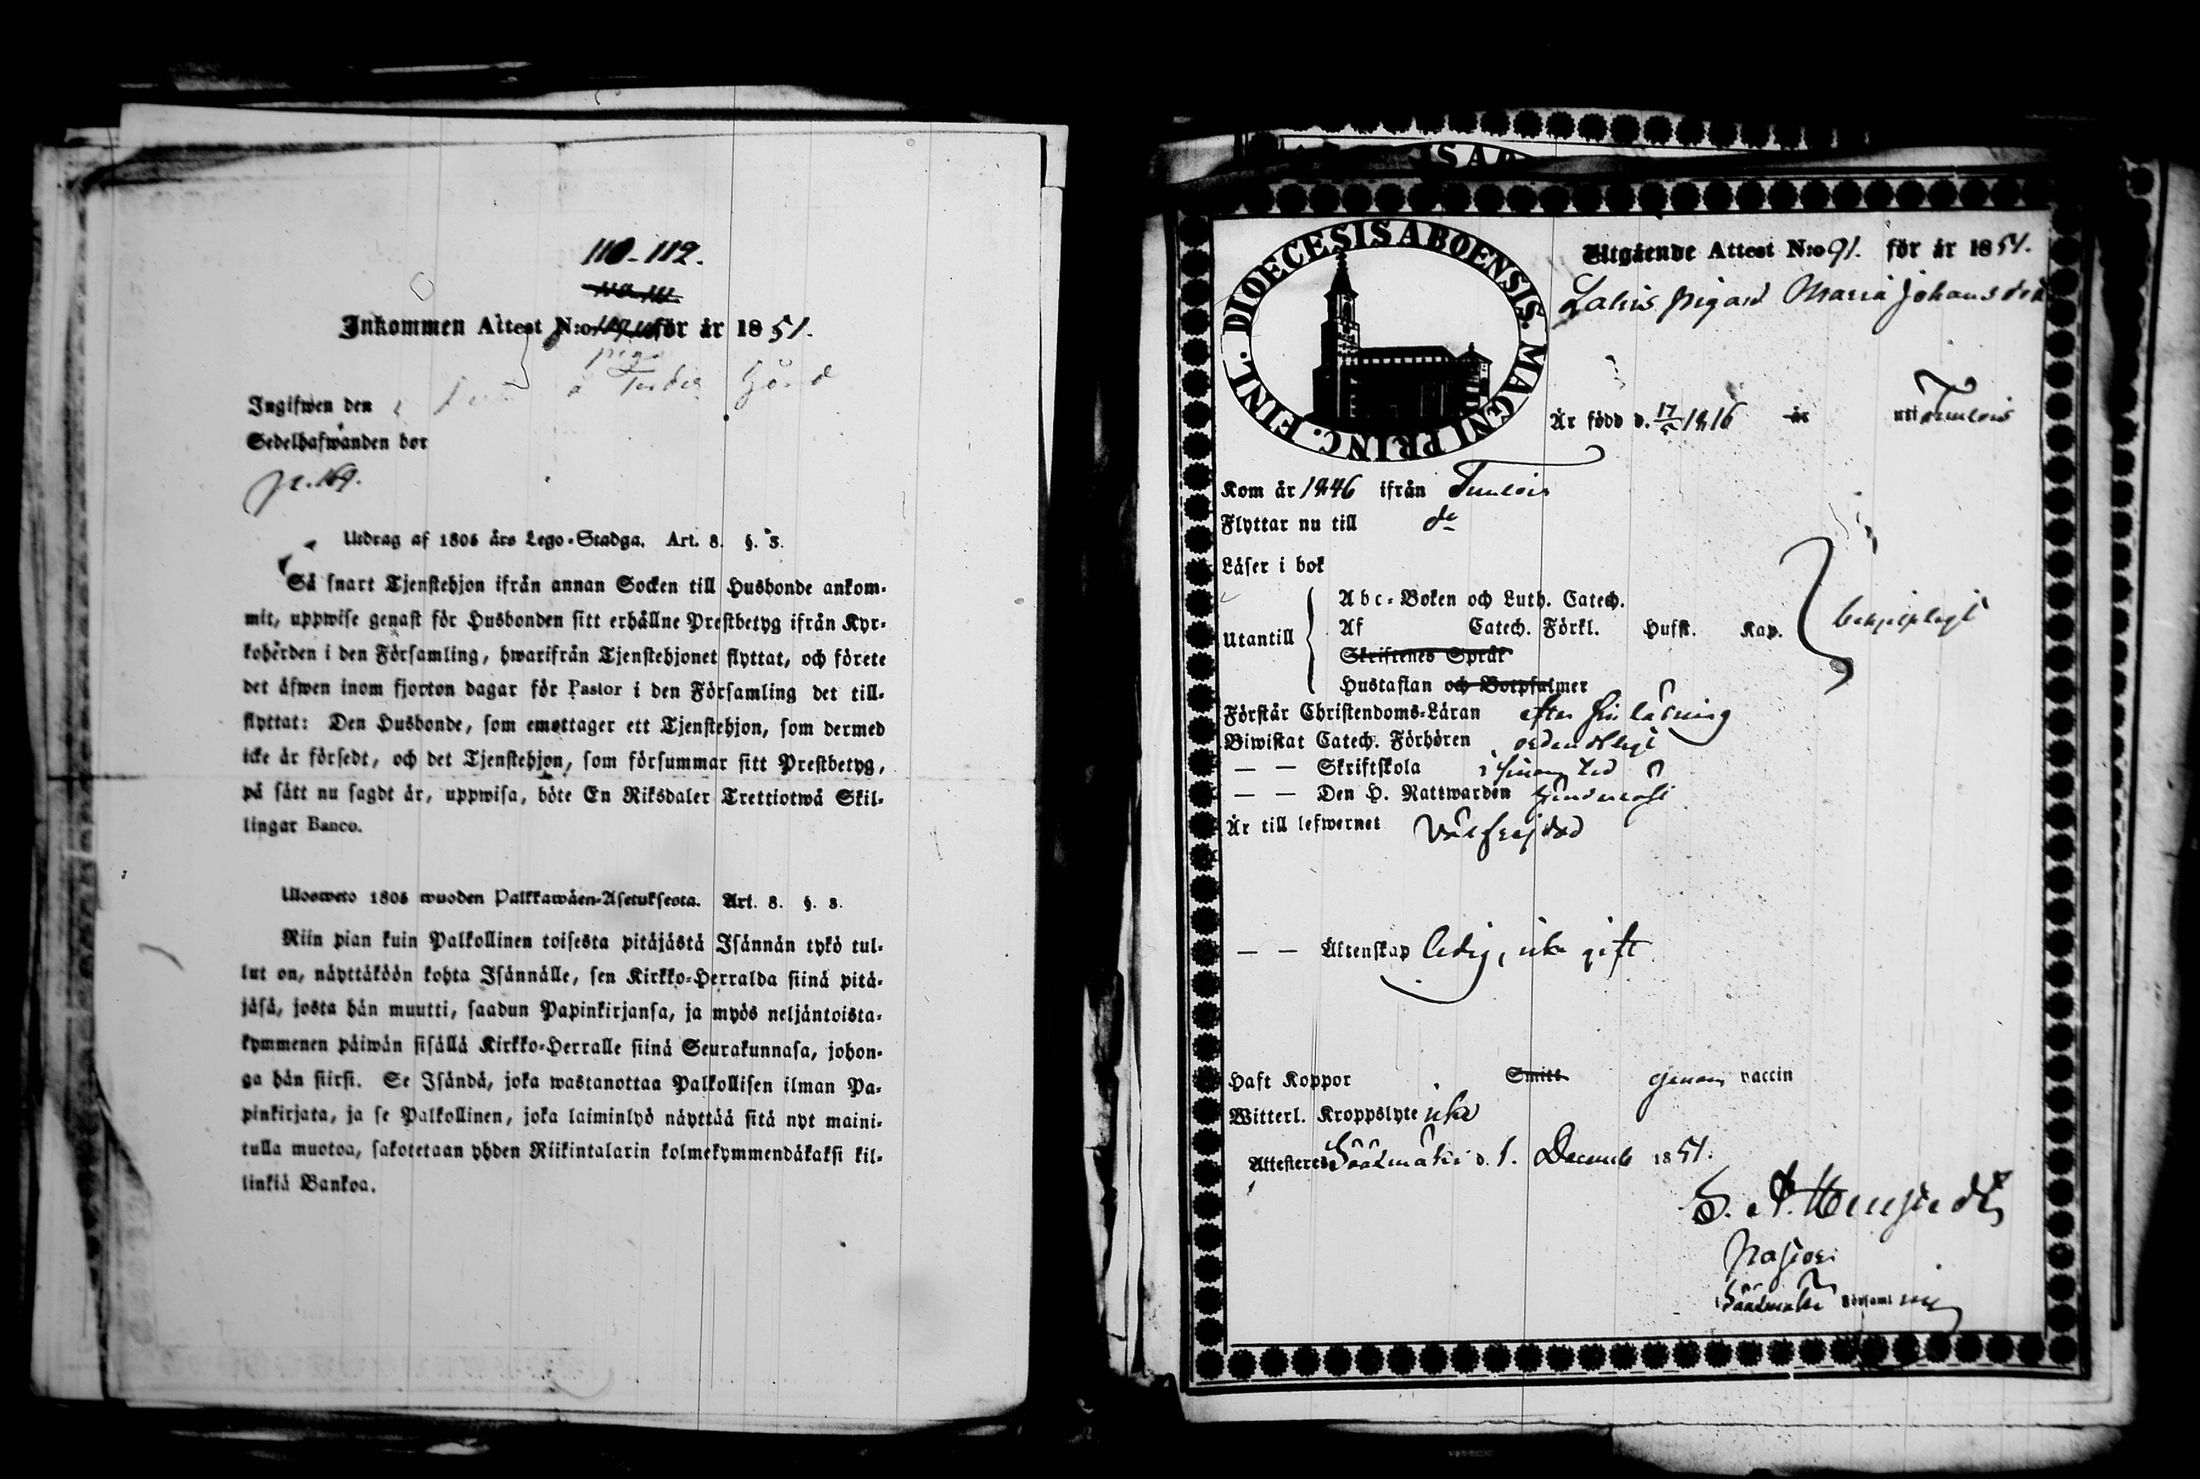 110-112.
Inkommen Attest N:o för år 1851.
piga
Ingifwen den
Sedelhafwanden bor
p. 169.
Utdrag af 1805 års Lego-Stadga. Art. 8. §. 3.
Så snart Tjenstehjon ifrån annan Socken till Husbonde ankom-
mit, uppwise genast för Husbonden sitt erhållne Prestbetyg ifrån Kyr-
koherden i den Församling, hwarifrån Tjenstehjonet flyttat, och förete
det äfwen inom fjorton dagar för Pastor i den Församling det till-
flyttat: Den Husbonde, som emottager ett Tjenstehjon, som dermed
icke är försedt, och det Tjenstehjon, som försummar sitt Prestbetyg,
på sätt nu sagdt är, uppwisa, böte En Riksdaler Trettiotwå Skil-
lingar Banco.
Uloswето 1805 wuoden Palkkawäen-Asetuksesta. Art. 8. §. 3.
Niin pian kuin Palkollinen toisesta pitäjästä Isännän tykö tul-
lut on, näyttäköön kohta Isännälle, sen Kirkko-Herralda siinä pitä-
jäsä, josta hän muutti, saadun Papinkirjansa, ja myös neljäntoista-
kymmenen päiwän sisällä Kirkko-Herralle siinä Seurakunnasa, johon-
ga hän siirsi. Se Isändä, joka wastanottaa Palkollisen ilman Pa-
pinkirjata, ja se Palkollinen, joka laiminlyö näyttää sitä nyt maini-
tulla muotoa, sakotetaan yhden Riikintalarin kolmekymmendäkaksi kil-
linkiä Bankoa.
DIOECESIS ABOENSIS. MAGNI PRINC. FINL.
Utgående Attest N:o 91. för år 1851.
pigan Maria Johansdr
Är född d. 17/5 1816 år uti Tuulois
Kom år 1846 ifrån Tuulois
Flyttar nu till do
Läser i bok
Utantill
Abc-Boken och Luth. Catech.
Af Catech. Förkl. Husst. Kap.
Skriftenes Språk
Hustaflan och Botpsalmer
Förstår Christendoms-Läran efter sin läsning
Biwistat Catech. Förhören ordentligt
— — Skriftskola i sinom tid
— — Den H. Nattwarden
Är till lefwernet välfrejdad
— — Äktenskap ledig, icke gift
Haft Koppor Smitt genom vaccin
Witterl. Kroppslyte icke
Attesteres Sääksmäki d. 1. December 1851.
Pastor
i Sääksmäki Församling